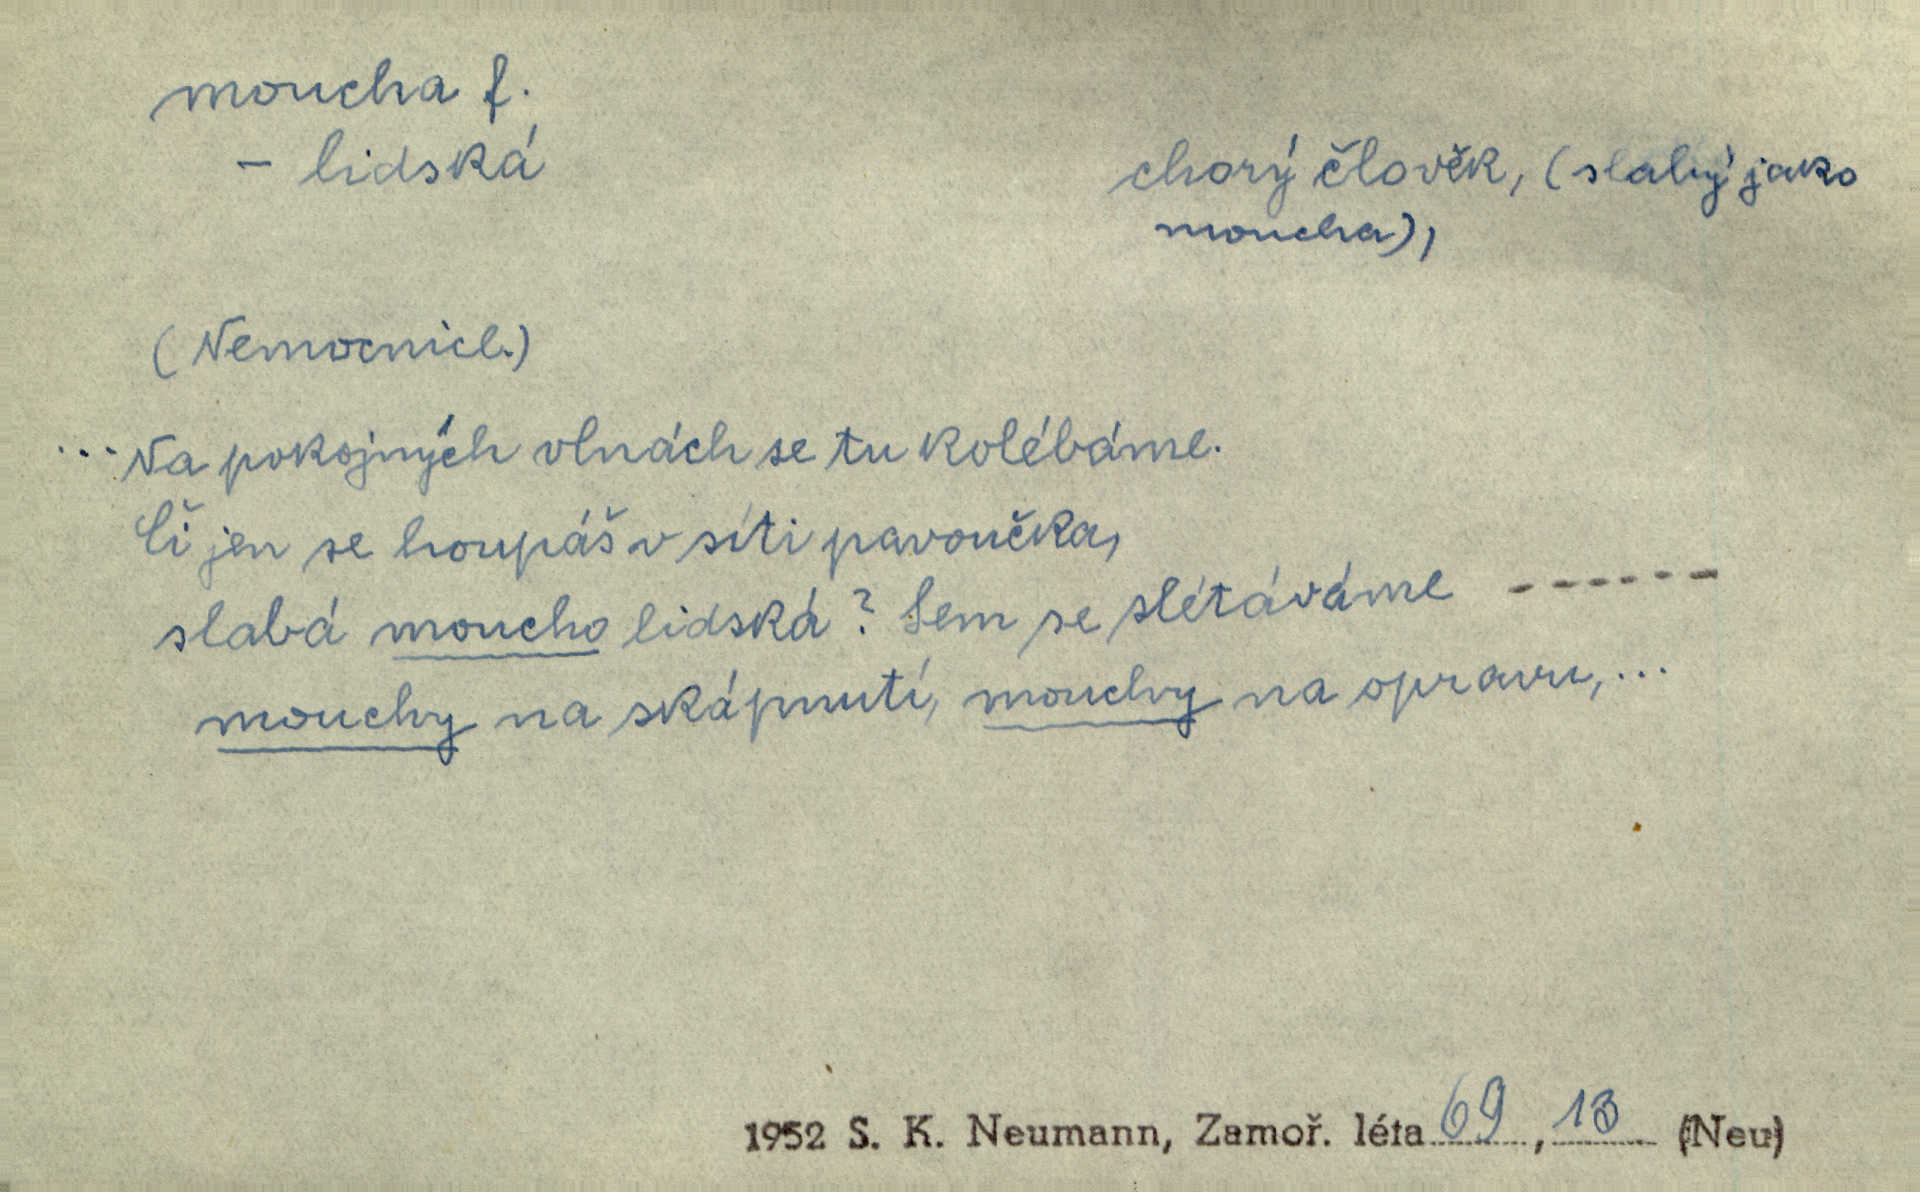 moucha f.
- lidská
chorý člověk, (slabý jako
moucha),
(Nemocnicl.)
...Na pokojných vlnách se tu kolébáme.
Či jen se houpáš v síti pavoučka,
slabá moucho lidská? Sem se slétáváme ------
mouchy na skápnutí, mouchy na opravu,...
1952 S. K. Neumann, Zamoř. léta 69, 13 (Neu)